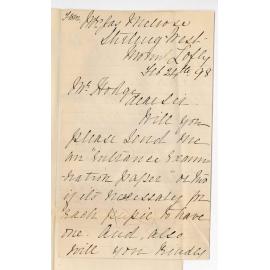 From
Melrose
Stirling West
Mount Lofty
Feb 24th 98
Mr Hodge
dear sir
Will you
please send me
an "Entrance Exami
nation paper" or two
is it necessary for
each pupil to have
one. And also
will you kindly